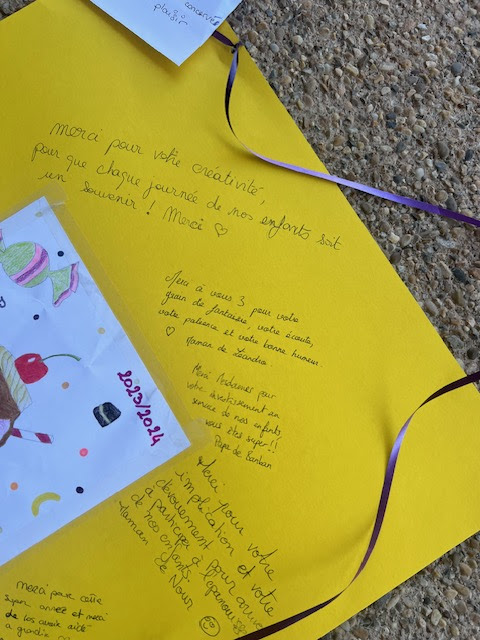 conservée
plaisir
merci pour votre créativité,
pour que chaque journée de nos enfants soit
un souvenir ! Merci ♡
Merci à vous 3 pour votre
grain de fantaisie, votre écoute,
votre patience et votre bonne humeur
♡ Maman de Léandre.
Merci Mesdames pour
votre investissement au
service de nos enfants,
vous êtes super !!
Papa de
2023/2024
Merci pour votre
implication et votre
dévouement pour
à participer à l'épanoui
de nos enfants.
Maman de Nour
merci pour cette
super année et merci
de les avoir aidé
a grandir